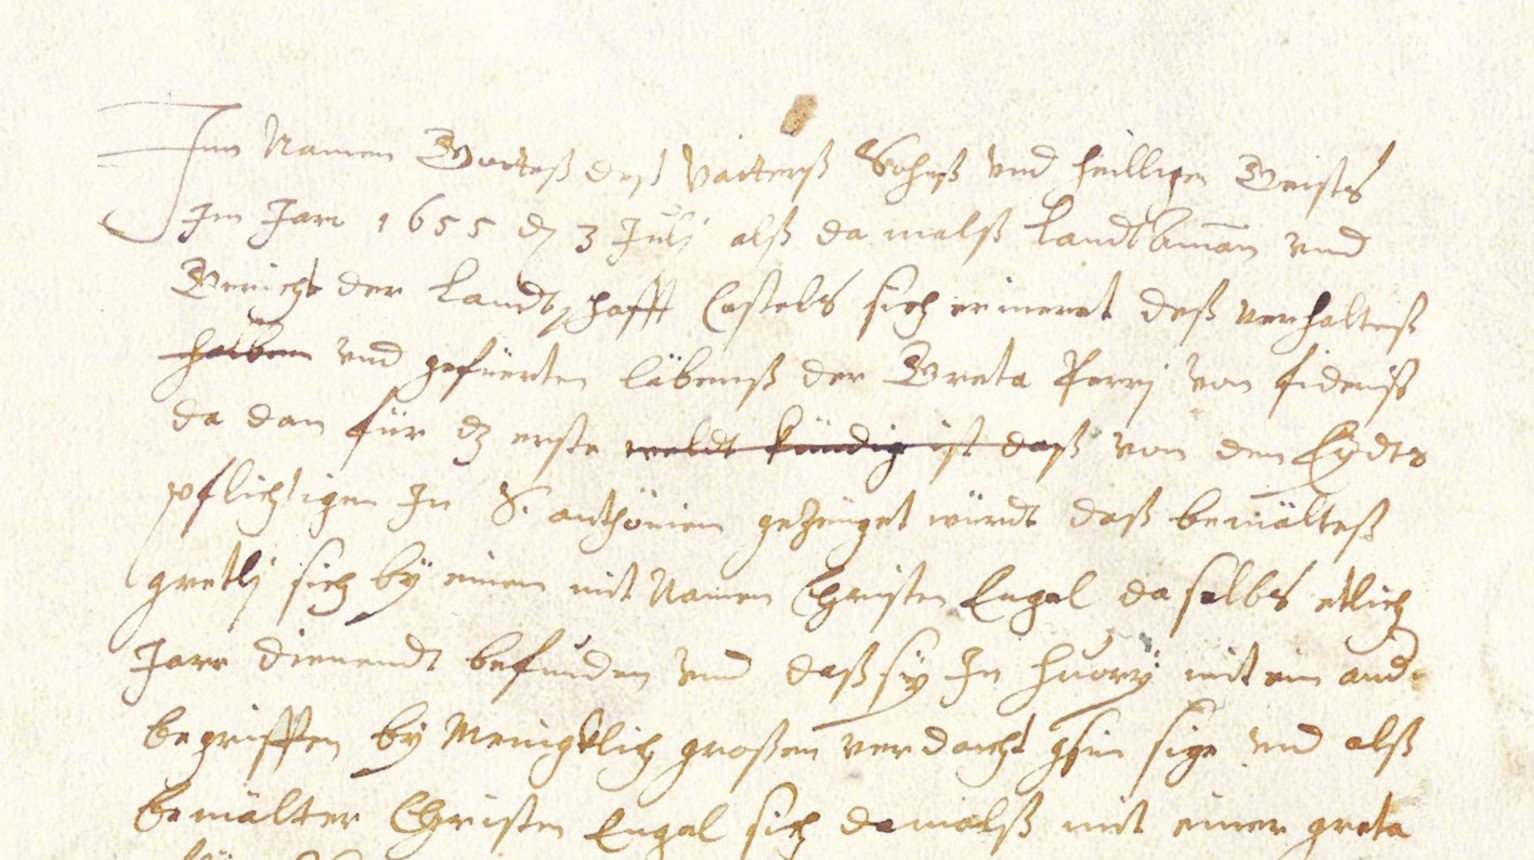 Inn Namen Gottes deß Vatterß Sohnß vnd heilligen Geists
Im Jare 1655 dz 3 Julj alß da malß Landtaman vnd
Gericht der Landtschafft Castels sich erineret deß verhalteß
halben vnd gefüerten läbenß der Greta Perrj von fideriß
da dan für dz erste weldt kündig ist daß von den Eydts
pflichtigen In S. anthönien gezeüget würdt daß bemälteß
gretlj sich bÿ einem mit Namen Christen Engel daselbs etlich
Jare dienendt befunden vnd daß sÿ In huorÿ mit ein and
begriffen bÿ Menigklich großen verdacht gsin sige vnd alß
bemälter Christen Engel sich damalß mit einer greta